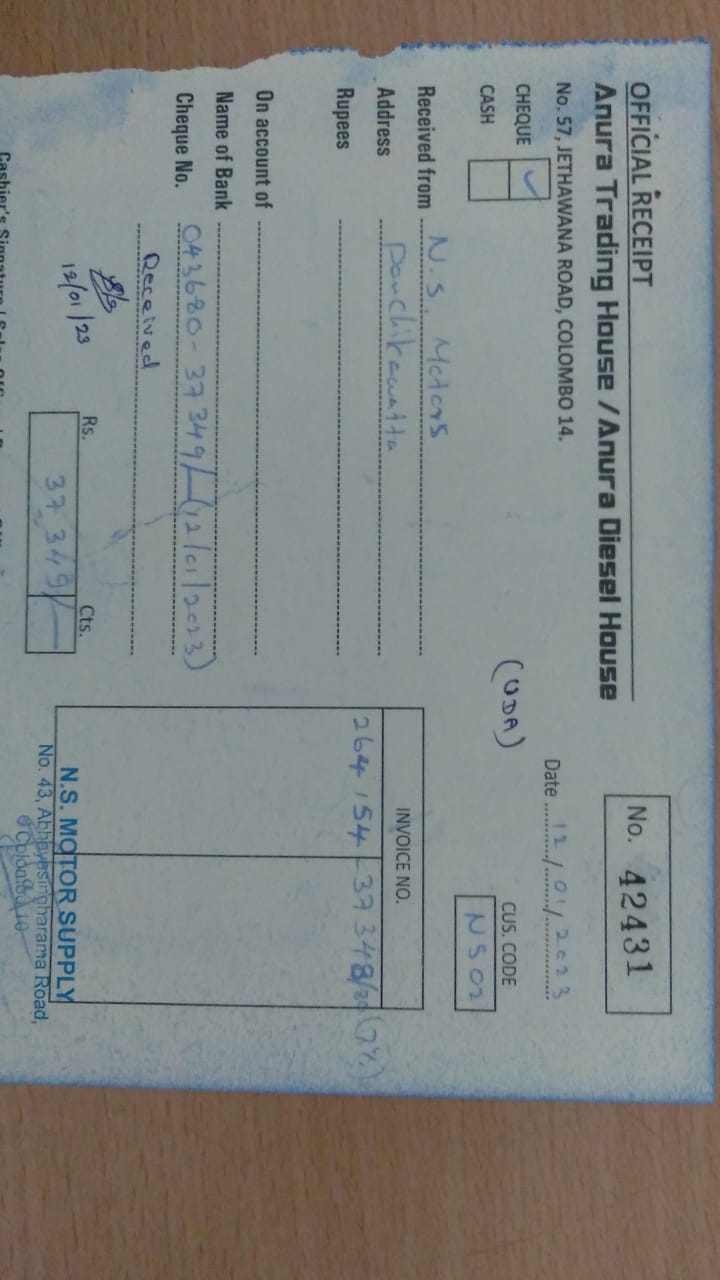 OFFICIAL RECEIPT
Anura Trading House / Anura Diesel House
No. 57, JETHAWANA ROAD, COLOMBO 14.
No. 42431
Date 12/01/2023
CHEQUE ✓
CASH
(UDA)
CUS. CODE
NS02
Received from N.S. Motors
Address Panchikawatta
Rupees
On account of
Name of Bank
Cheque No. 043680 - 37349/- (12/01/2023)
Received
12/01/23
Rs. Cts.
37,349/-
INVOICE NO.
264154 - 37348/80 (7%)
N.S. MOTOR SUPPLY
No. 43, Abhayasingharama Road,
Colombo 10.
Cashier's Signature /